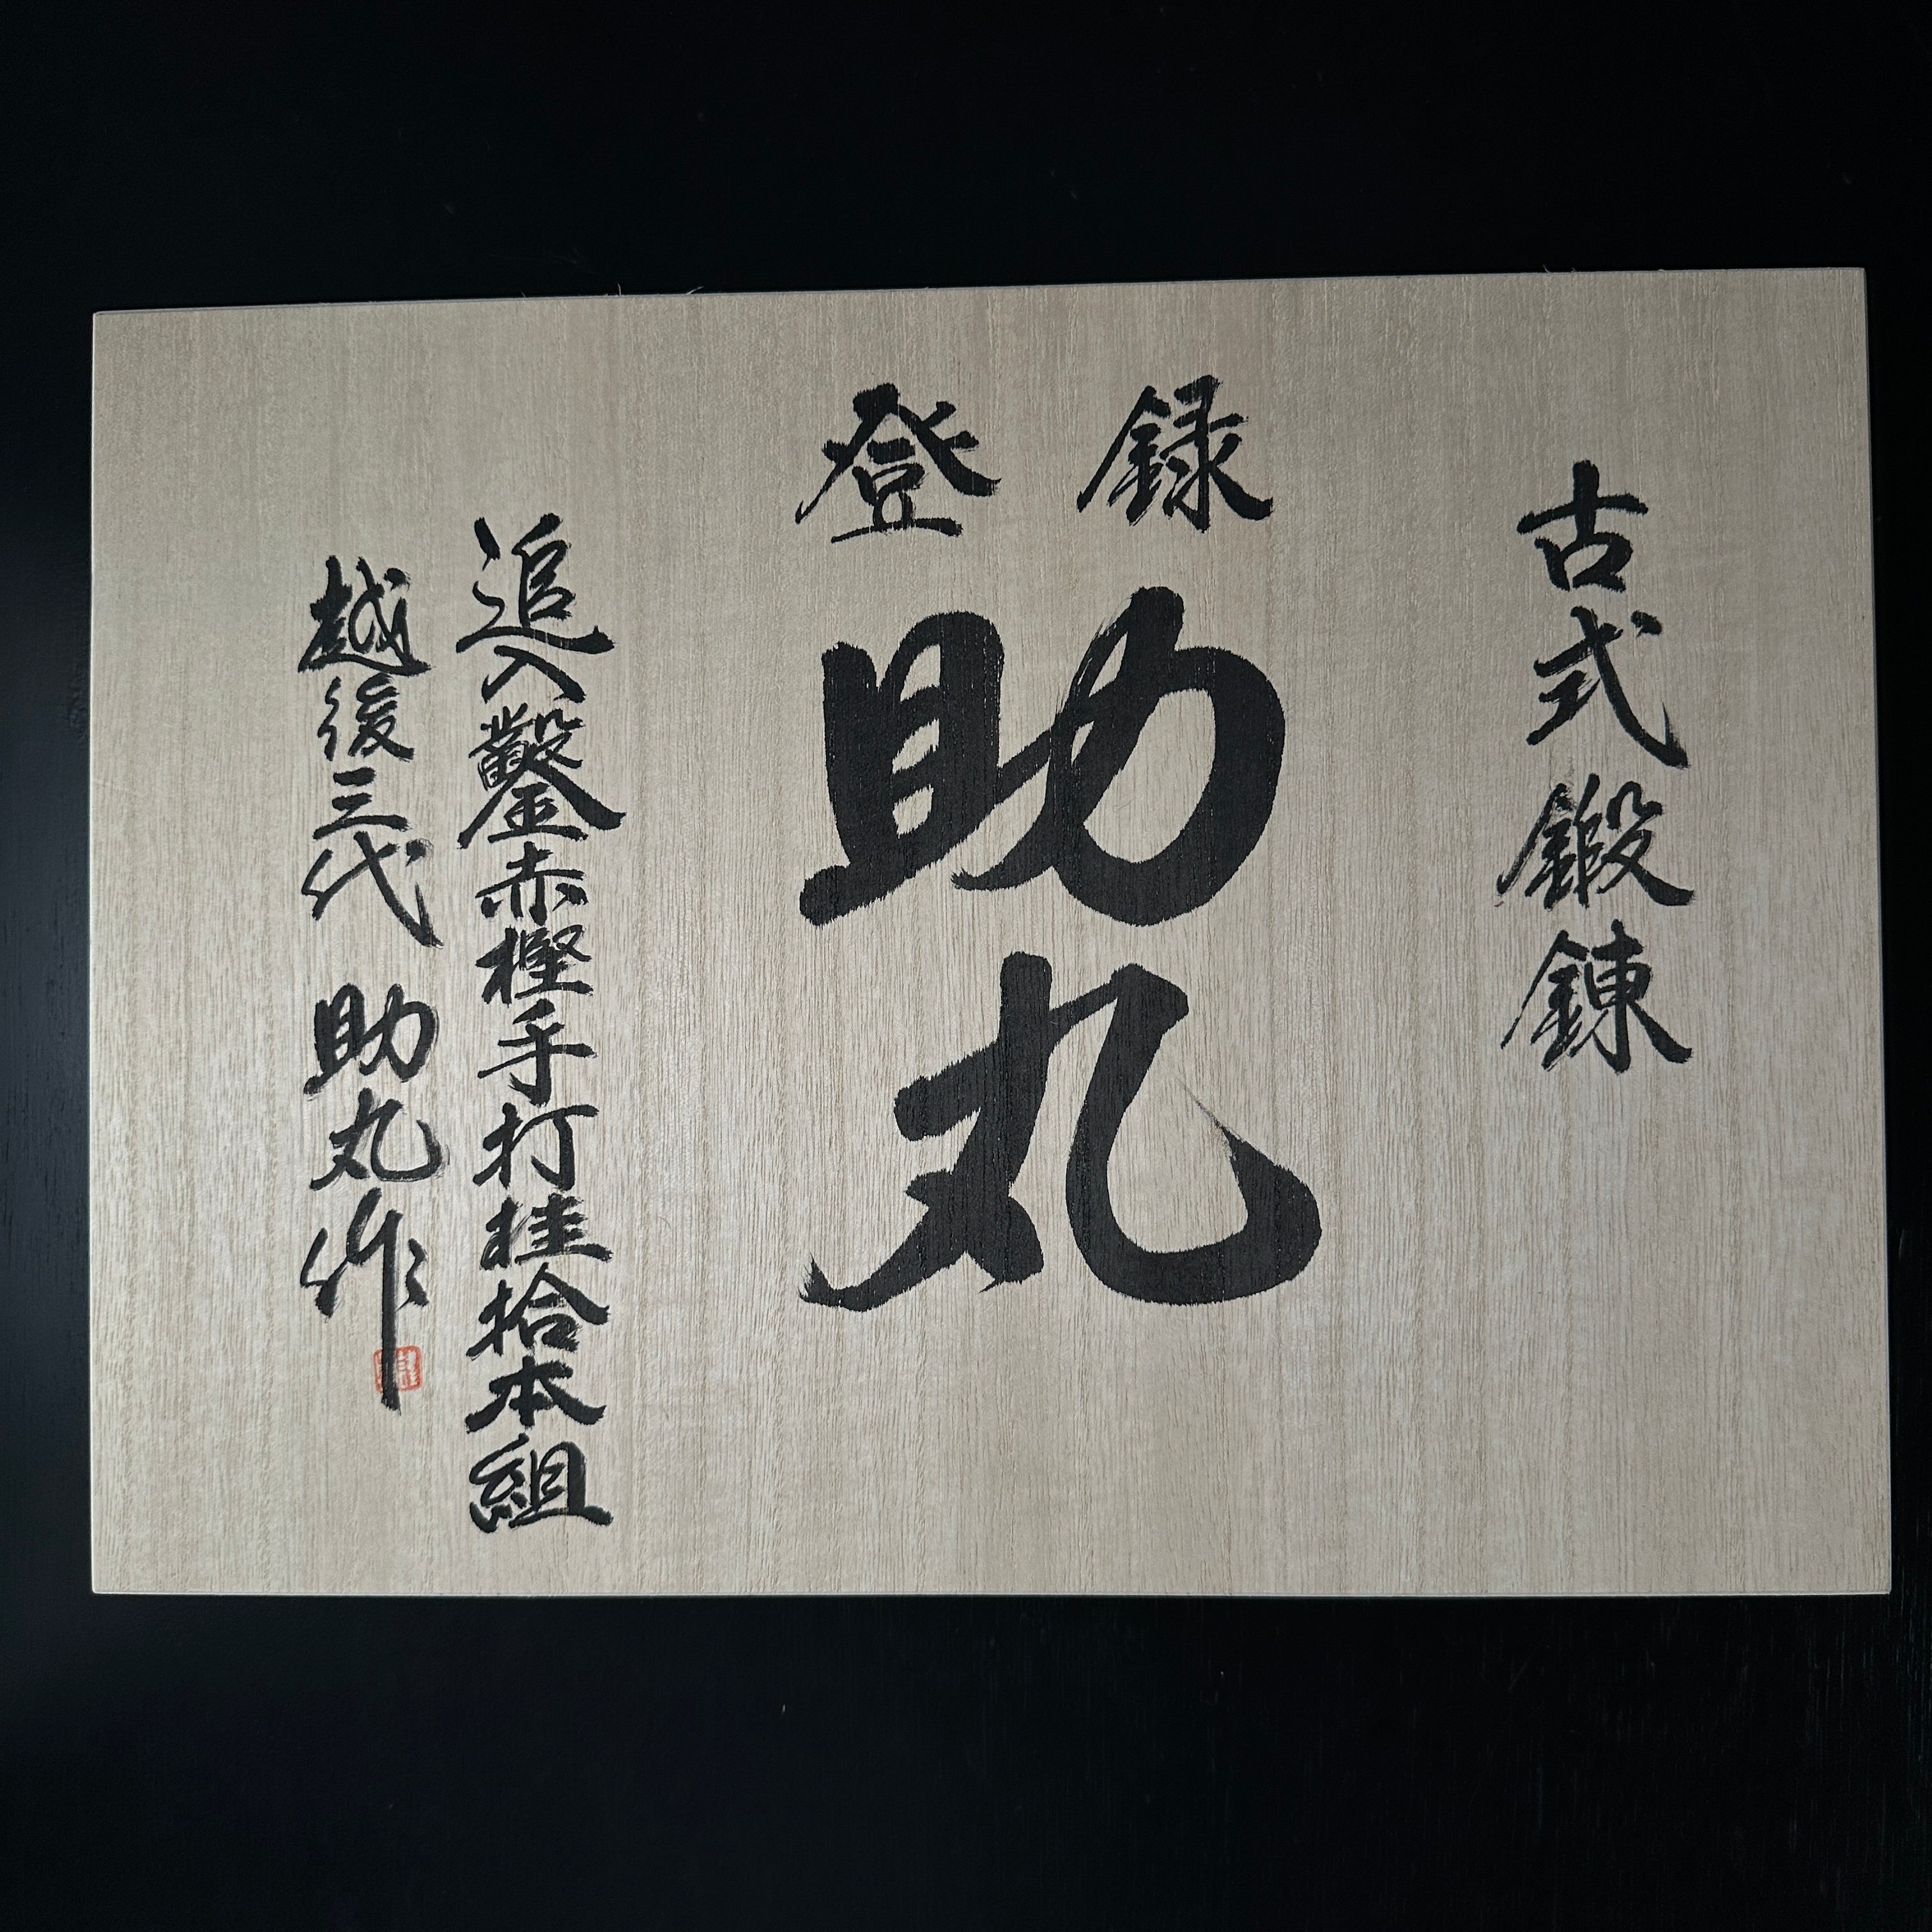 古式鍛錬
登録
助丸
追入鑿赤樫手打桂拾本組
越後三代 助丸作